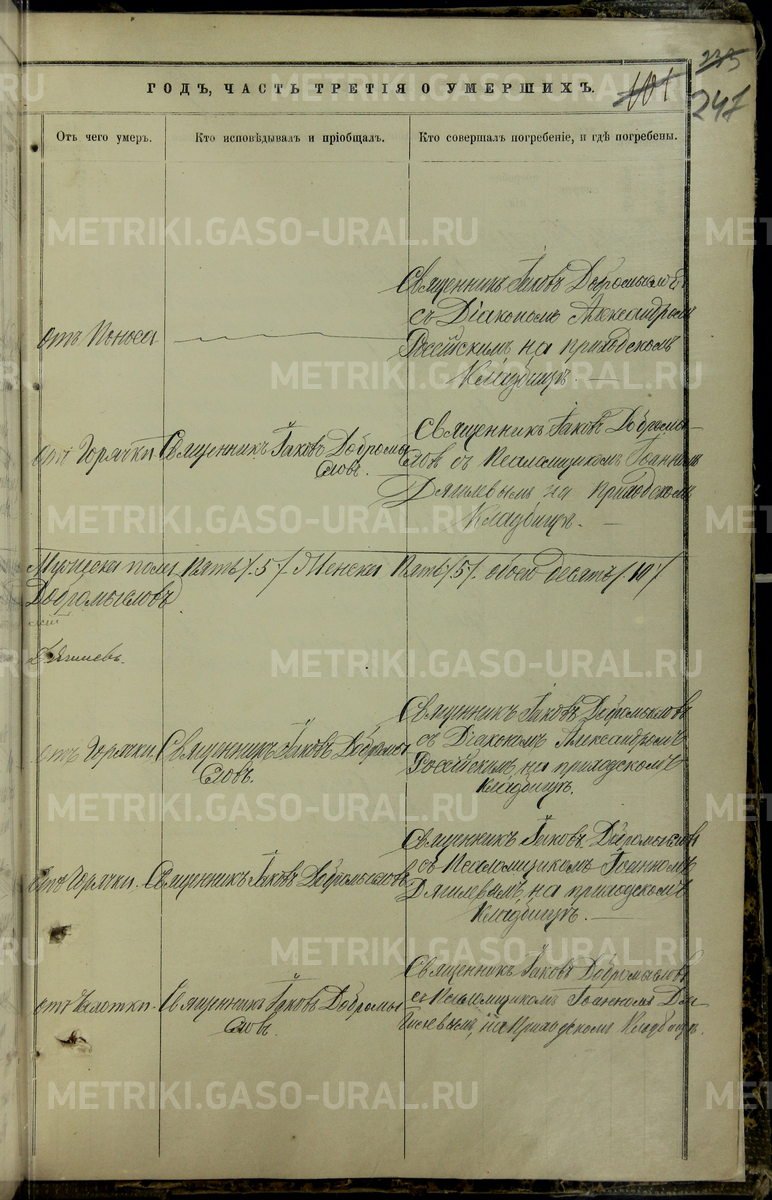 235
101
247
ГОДЪ, ЧАСТЬ ТРЕТІЯ О УМЕРШИХЪ.
Отъ чего умеръ.
Кто исповѣдывалъ и пріобщалъ.
Кто совершалъ погребеніе, и гдѣ погребены.
отъ Поноса
Священникъ Іаковъ Добромысловъ
съ Діакономъ Александромъ
Россійскимъ, на приходскомъ
Кладбищѣ.
отъ Горячки
Священникъ Іаковъ Добромы
словъ.
Священникъ Іаковъ Добромы-
словъ съ Псаломщикомъ Іоанномъ
на приходскомъ
Кладбищѣ.
Мужеска пола Пять /5/. Женска Пять /5/. обоего десять /10/
Добромысловъ
отъ Горячки.
Священникъ Іаковъ Добромы
словъ.
Священникъ Іаковъ Добромысловъ
съ Діакономъ Александромъ
Россійскимъ, на приходскомъ
Кладбищѣ.
отъ Горячки.
Священникъ Іаковъ Добромысловъ
Священникъ Іаковъ Добромысловъ
съ Псаломщикомъ Іоанномъ
на приходскомъ
Кладбищѣ.
отъ Чахотки.
Священникъ Іаковъ Добромы
словъ.
Священникъ Іаковъ Добромысловъ
съ Псаломщикомъ Іоанномъ
на Приходскомъ Кладбищѣ.
METRIKI.GASO-URAL.RU